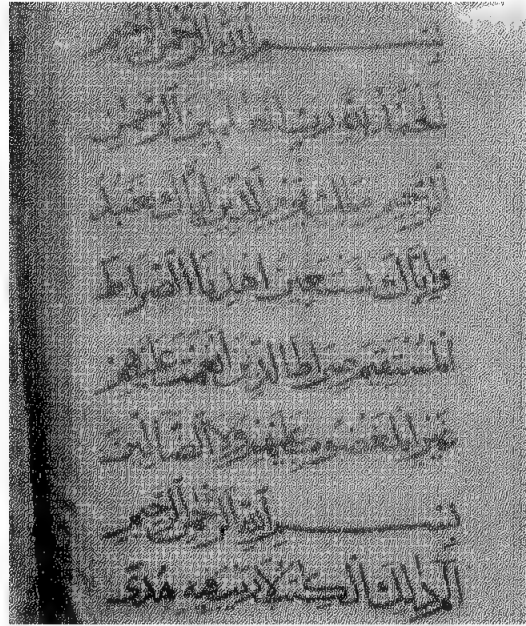 بسم الله الرحمن الرحيم
الحمد لله رب العلمين الرحمن
الرحيم ملك يوم الدين إياك نعبد
وإياك نستعين اهدنا الصراط
المستقيم صراط الذين أنعمت عليهم
غير المغضوب عليهم ولا الضالين
بسم الله الرحمن الرحيم
الم ذلك الكتب لا ريب فيه هدى